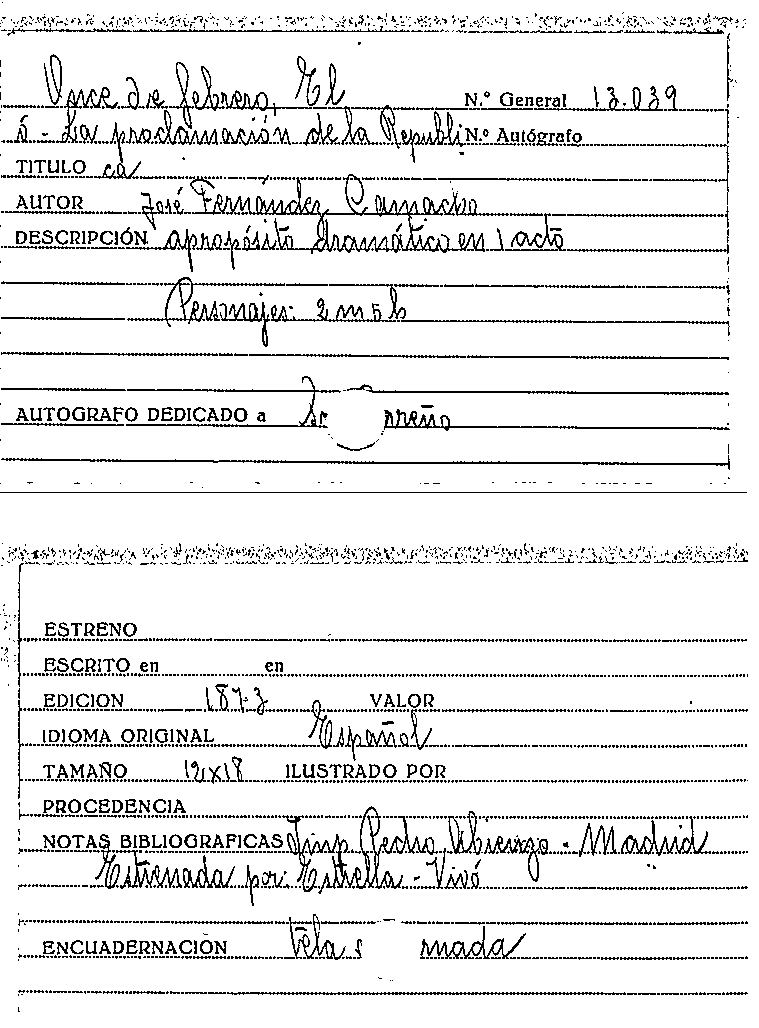 Once de febrero, El
N.º General 13.039
ó - La proclamación de la Republi N.º Autógrafo
TITULO ca
AUTOR José Fernández Camacho
DESCRIPCIÓN apropósito dramático en 1 acto
Personajes: 2 m 5 h
AUTOGRAFO DEDICADO a
ESTRENO
ESCRITO en en
EDICION 1873 VALOR
IDIOMA ORIGINAL Español
TAMAÑO 12x18 ILUSTRADO POR
PROCEDENCIA
NOTAS BIBLIOGRAFICAS Imp Pedro Abienzo - Madrid
Estrenada por: Estrella - Vivó
ENCUADERNACIÓN tela